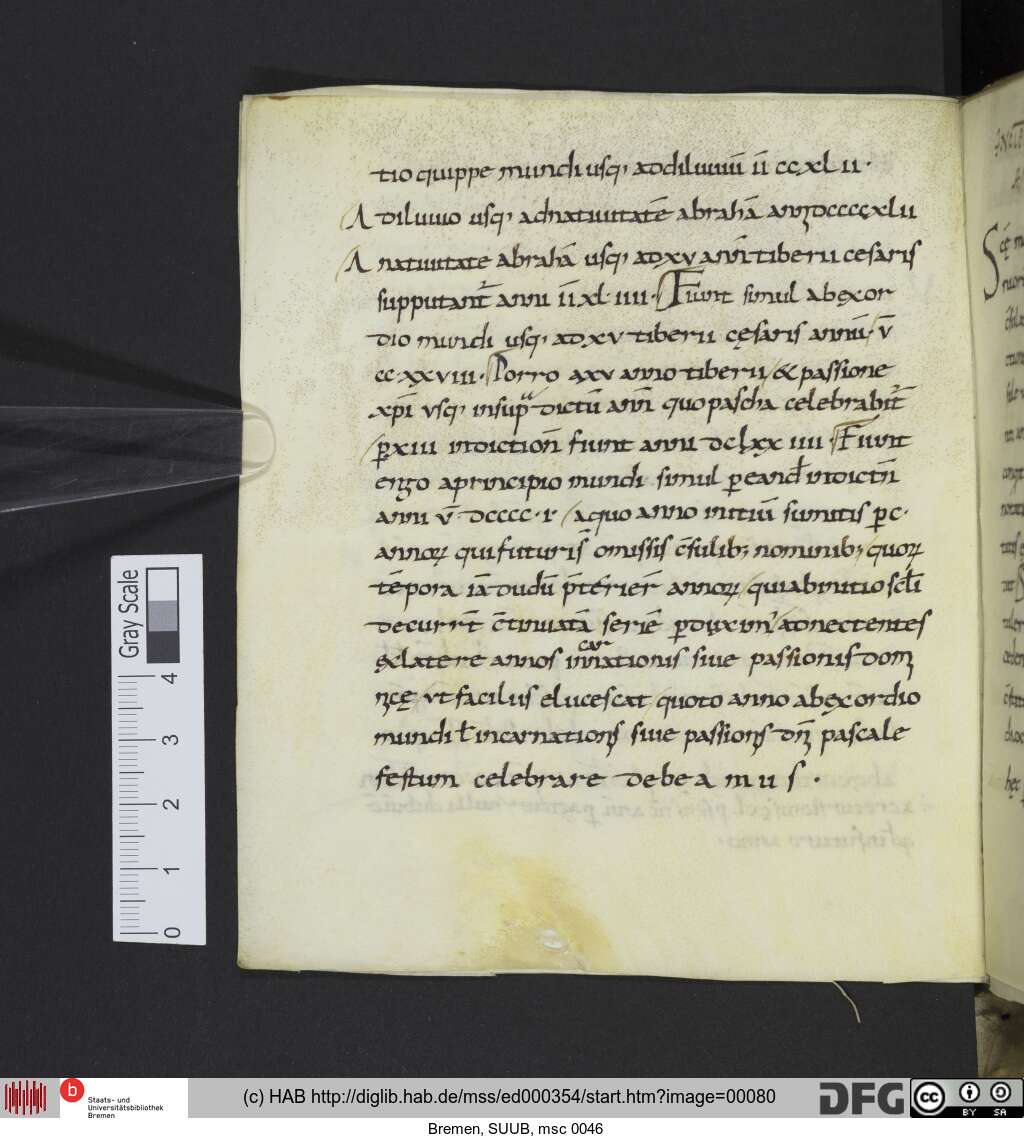 tio quippe mundi usq; ad diluuiū īī ccxlii·
A diluuio usq; ad natiuitatē abrahā annꝫ dccccxlii
A natiuitate abrahā usq; ad xv annī tiberii cesaris
supputant̄ anni īī xl·iiii· Fiunt simul ab ęxor
dio mundi usq; ad xv tiberii cęsaris annii· v̄
ccxxviii· Porro a xv anno tiberii & passione
xp̄i usq; in sup̱ᵃdictū annī quo pascha celebrabit̄
ꝑ xiii indiction̄ fiunt anni dclxxiiii· Fiunt
ergo a principio mundi simul ꝑ eand̄ indictn̄
anni v̄ dcccc·i· a quo anno initiū sumitis ꝑ c·
annoꝝ qui futuris omissis c̄sulibꝫ nominibꝫ quoꝝ
tēpora iā dudū p̄terier̄ annoꝝ qui ab initio scl̄i
decurrt̄ c̄tinuatā seriē ꝑduxim᾽ adnectentes
ęx latere annos innationis siue passionis dom
car
nicę ut facilus elucescat quoto anno ab ęxordio
mundi ƚ incarnationis siue passionis dn̄i pascale
festum celebrare debeamus·
Gray Scale
4
3
2
1
0
b
Staats- und
Universitätsbibliothek
Bremen
(c) HAB http://diglib.hab.de/mss/ed000354/start.htm?image=00080
DFG
cc
BY SA
Bremen, SUUB, msc 0046